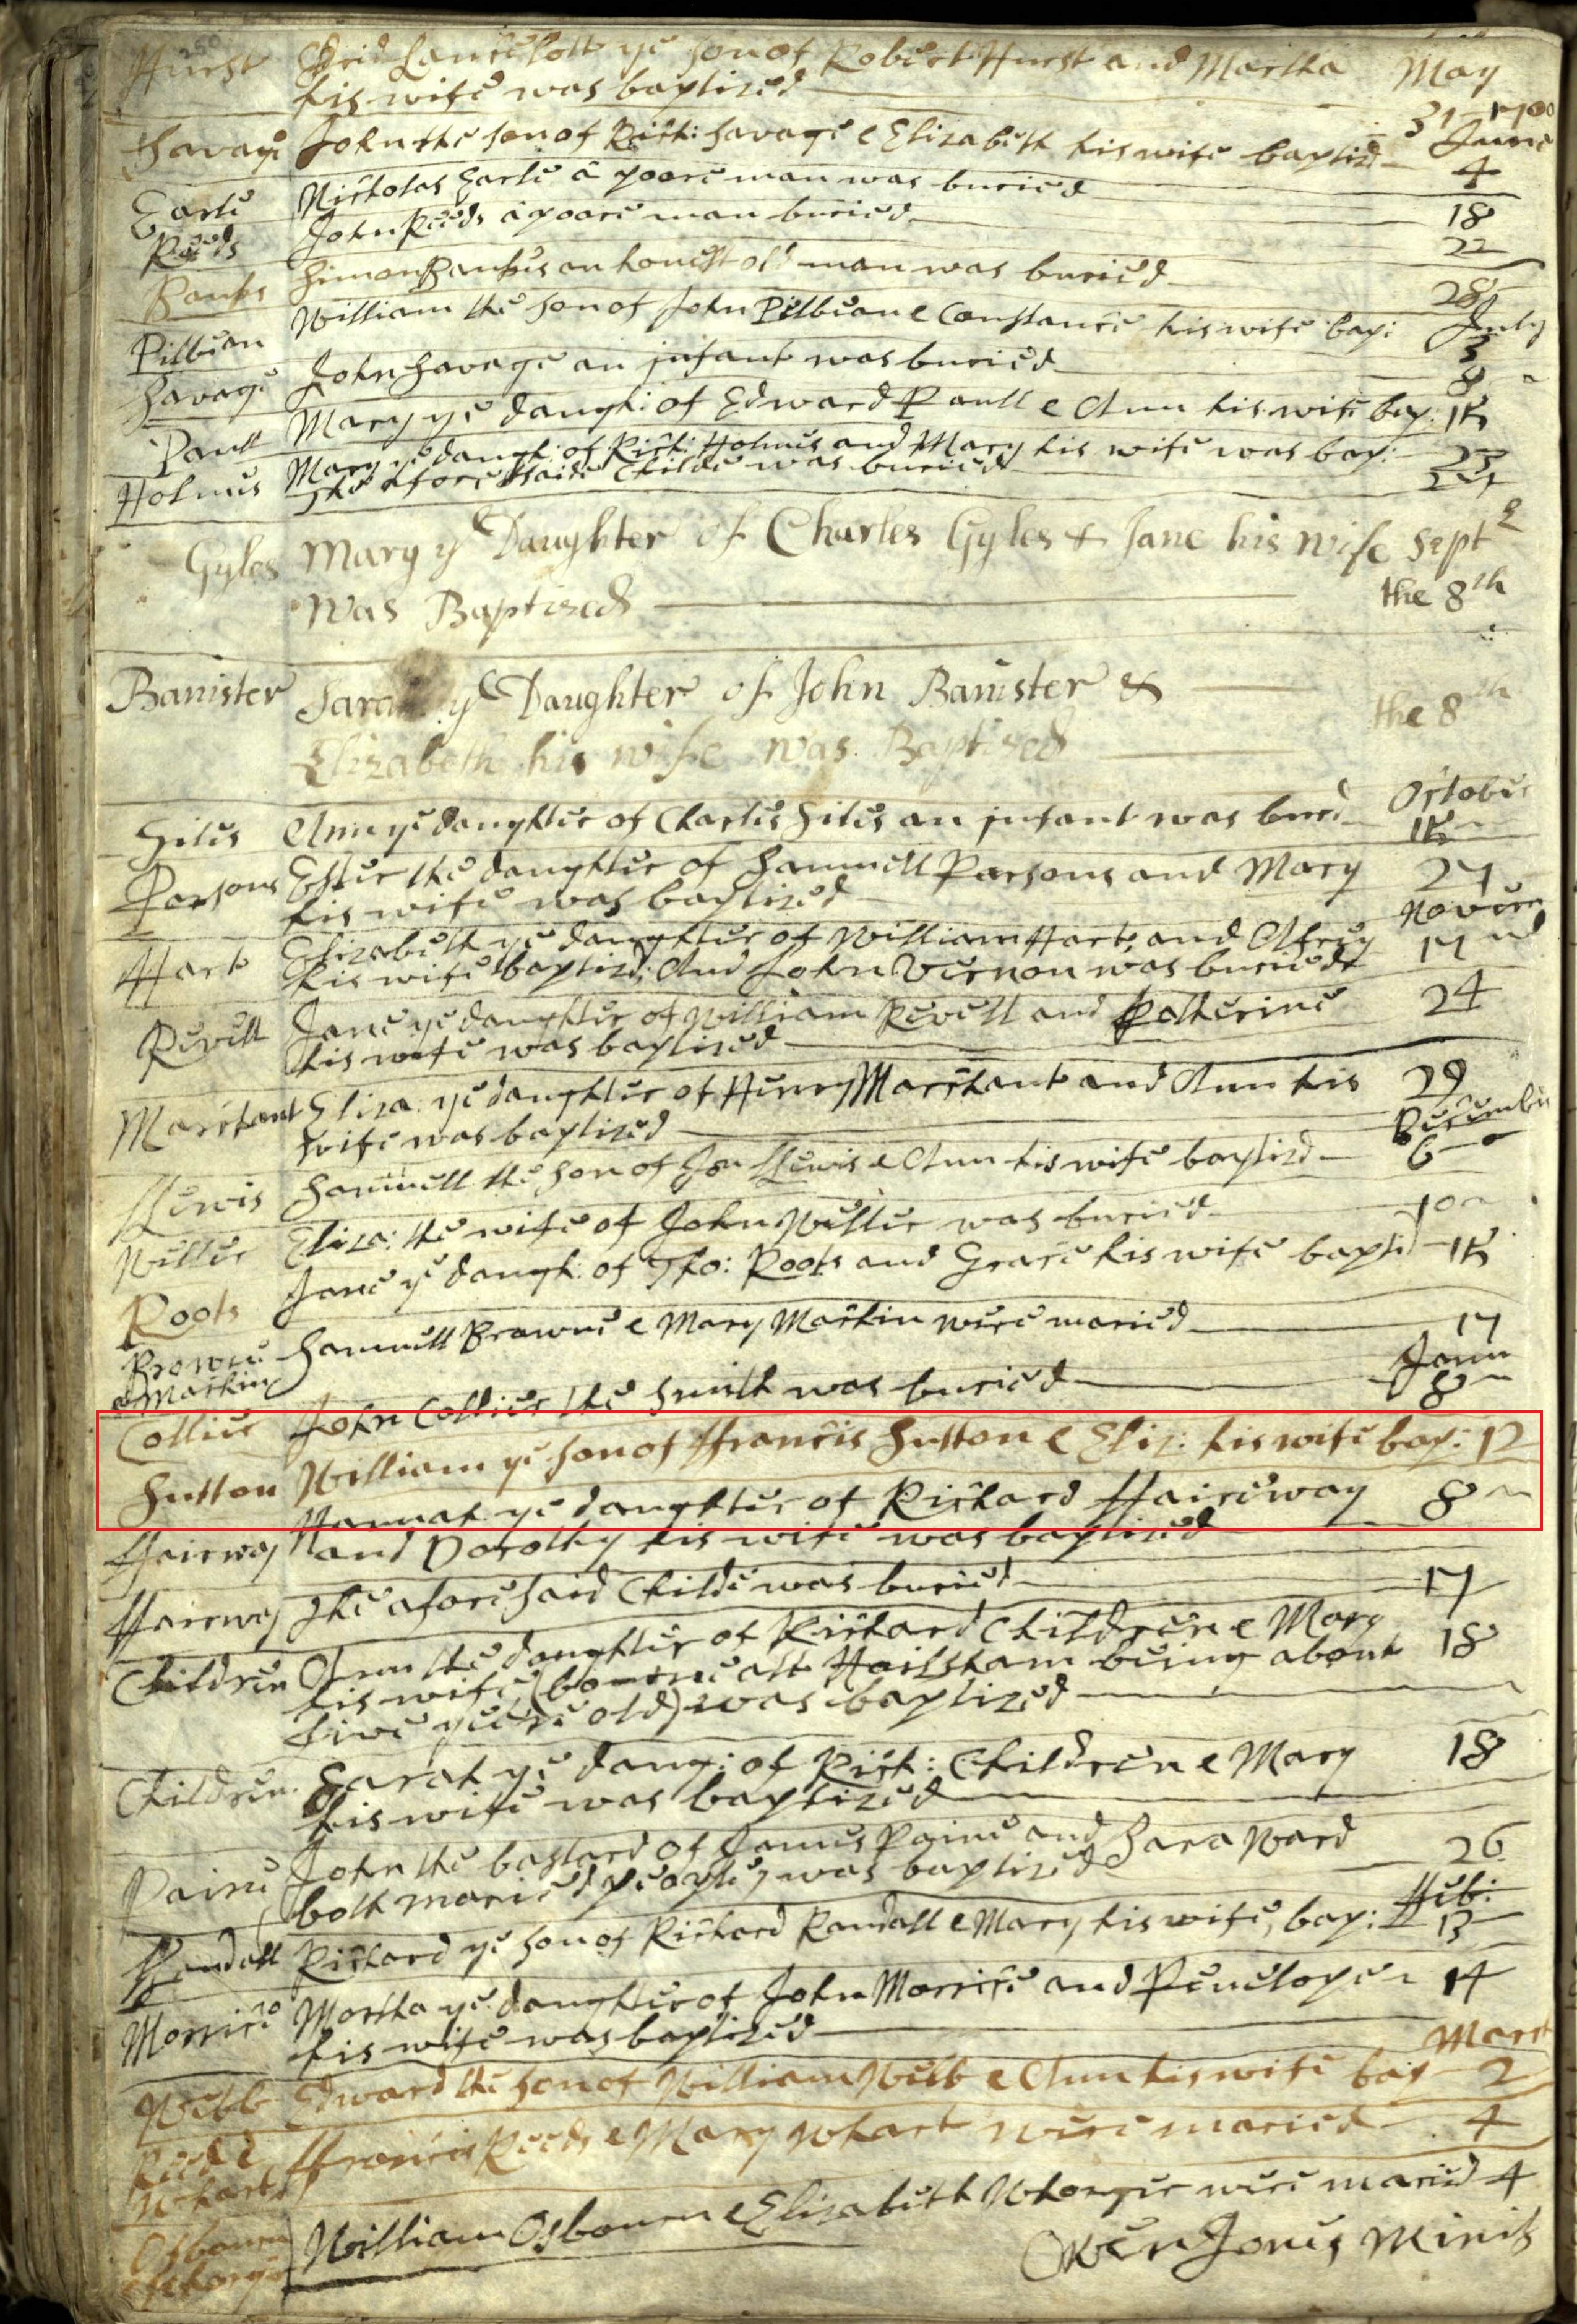 Hurst Edrid Lancelott ye son of Robert Hurst and Martha May
his wife was baptized 31 1700
Savage John the son of Rich: Savage e Elizabeth his wife baptizd June 4
Earle Nicholas Earle a poore man was buried 18
Reeds John Reeds a poore man buried 22
Banks Simon Bankes an honest old man was buried 28
Pilbean William the son of John Pilbean e Constance his wife bap: July 3
Savage John Savage an infant was buried 8
Paull Mary ye daught: of Edward Paull e Ann his wife bap: 15
Holmes Mary ye daugh: of Rich: Holmes and Mary his wife was bap: 23
The aforesaide Childe was buried 24
Gyles Mary ye Daughter of Charles Gyles & Jane his wife Sept
Was Baptized the 8th
Banister Sarah ye Daughter of John Banister & the 8th
Elizabeth his wife was Baptized
Giles Ann ye daughter of Charles Giles an infant was bured October 15
Parsons Ester the daughter of Sammell Parsons and Mary 27
his wife was baptized Novem
Hart Elizabeth ye daughter of William Hart and Alfrey 17
his wife baptizd; And John Vernon was buried
Revell Jane ye daughter of William Revell and Katherine 24
his wife was baptized
Marchant Eliza: ye daughter of Henry Marchant and Ann his 29
wife was baptized December
Llewis Sammell the son of Jon Llewis e Ann his wife baptizd 6
Weller Eliza: the wife of John Weller was buried 10
Roots Jane ye daugh: of Tho: Roots and Grace his wife baptizd 15
Browne Sammell Browne e Mary Mackin were maried 17
e Mackin Jann
Collier John Collier the Smith was buried 8
Sutton William ye son of Ffrancis Sutton e Eliz: his wife bap: 12
Hannah ye daughter of Richard Haireway 8
Haireway and Dorothy his wife was baptized
Haireway The aforesaid Childe was buried 17
Children Ann the daughter of Richard Children e Mary 18
his wife (borne att Hailsham being about
five yeere old) was baptized
Children Sarah ye daug: of Rich: Children e Mary 18
his wife was baptized
Paine John the bastard of James Paine and Sara Ward
(both maried people) was baptized 26
Randall Richard ye son of Richard Randall e Mary his wife, bap: Ffeb: 13
Morrice Martha ye daughter of John Morrice and Penelope 14
his wife was baptized March
Webb Edward the son of William Webb e Ann his wife bap 2
Reed e Ffrancis Reeds e Mary Whart were maried 4
Whart
Osbourn William Osbourn e Elizabeth Whorger were maried 4
e Whorger
Owen Jones Minis